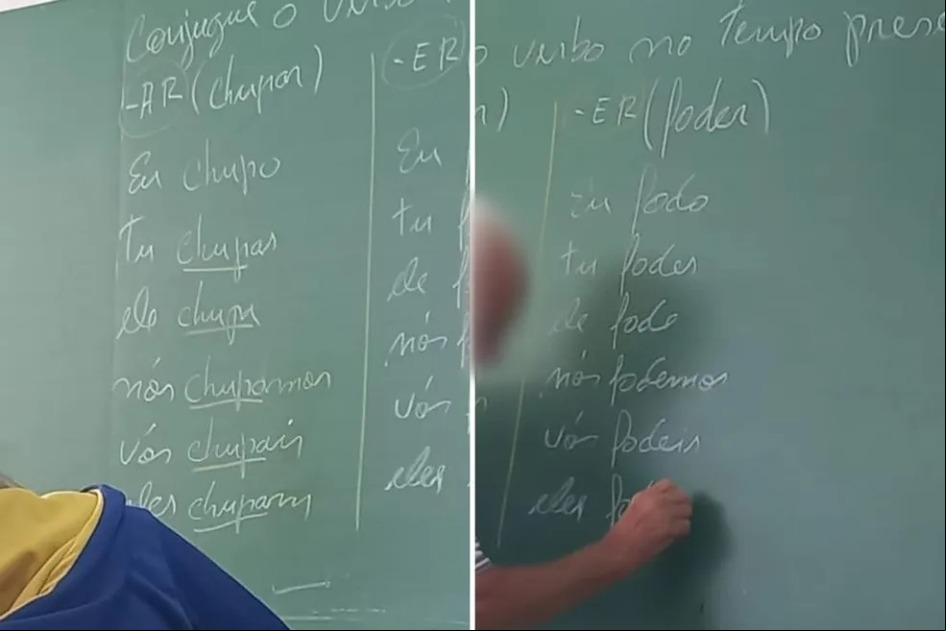 Conjugue o
-AR (chupar)
Eu chupo
tu chupas
ele chupa
nós chupamos
vós chupais
eles chupam
-ER
Eu
tu
ele
nós
vós
eles
o verbo no tempo prese
-ER (foder)
Eu fodo
tu fodes
ele fode
nós fodemos
vós fodeis
eles